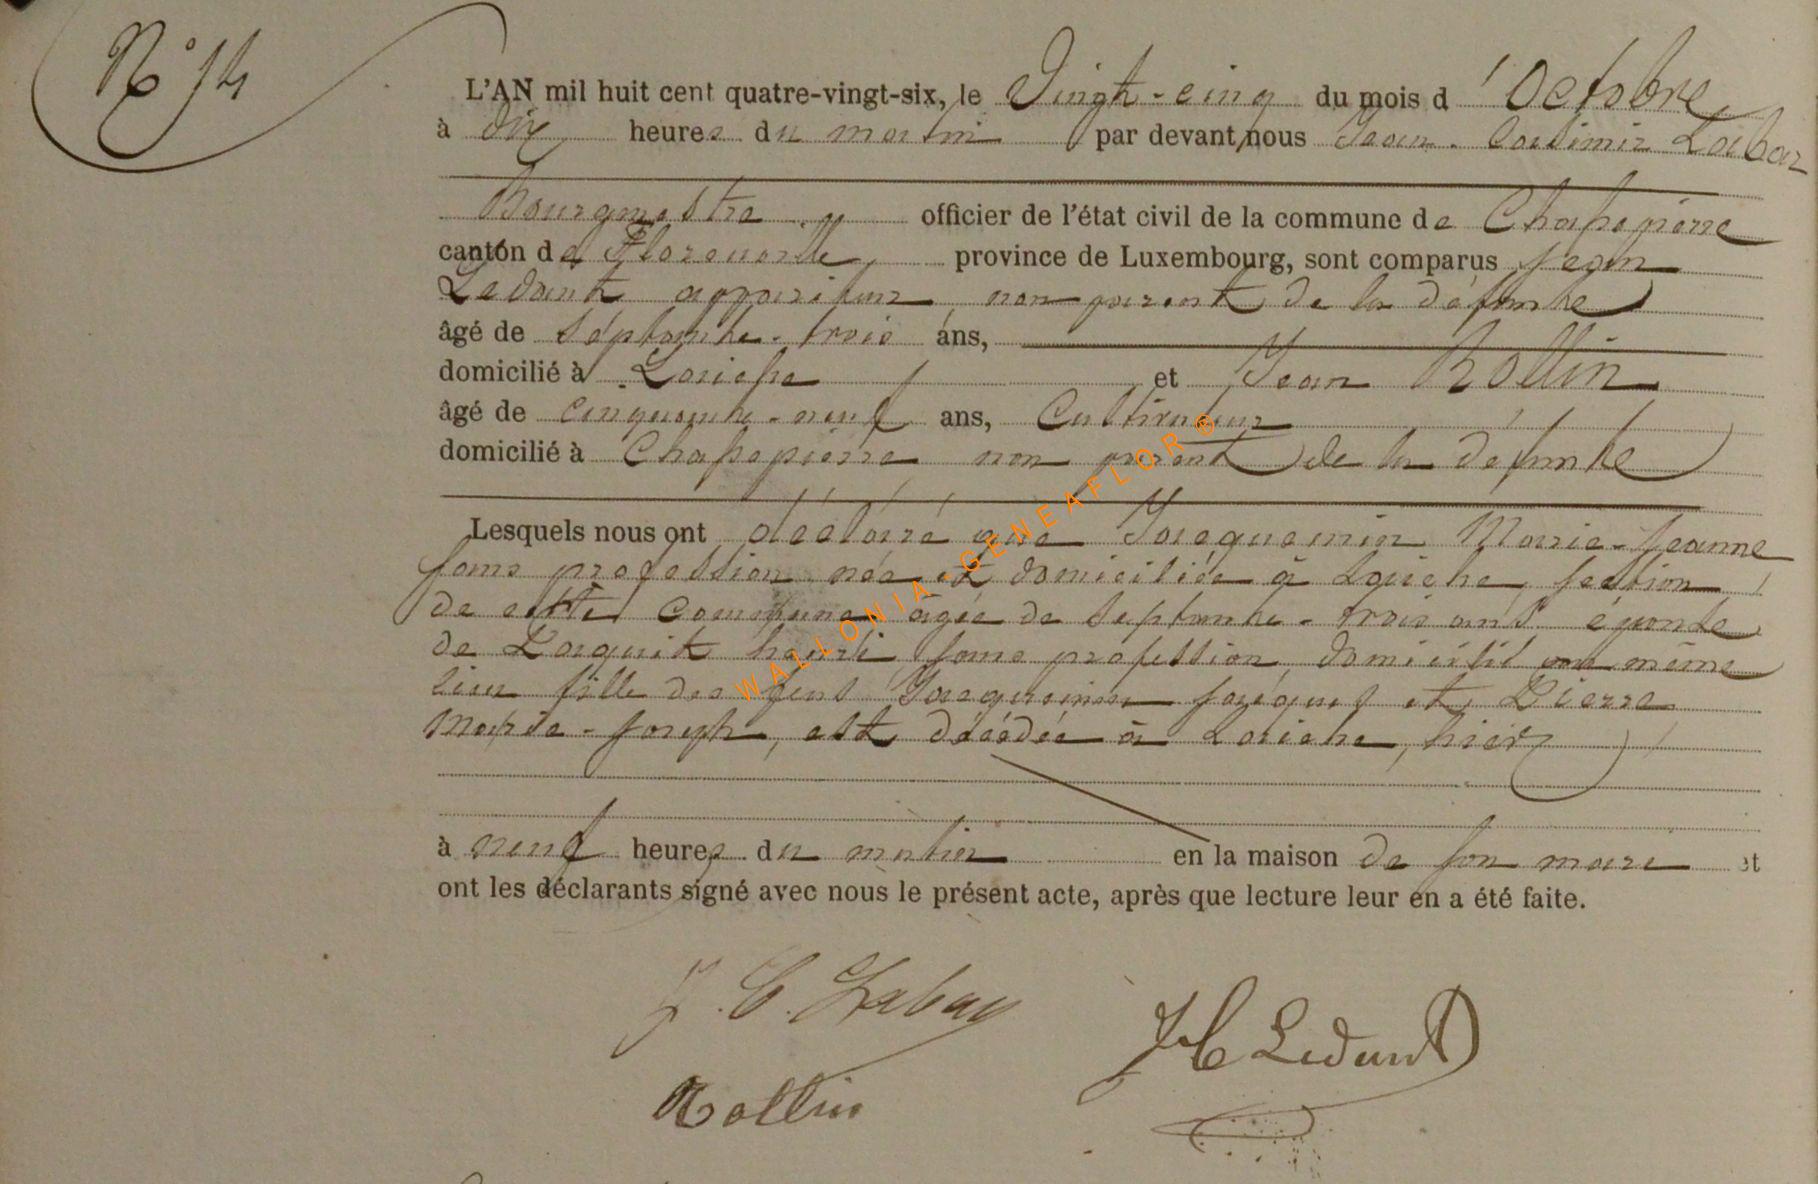 N° 14
L'AN mil huit cent quatre-vingt-six, le Vingt-cinq du mois d'Octobre
à dix heures du matin par devant nous Jean-Casimir Labar
Bourgmestre officier de l'état civil de la commune de Chassepierre
canton de Florenville, province de Luxembourg, sont comparus Jean
Ledant appariteur, non parent de la défunte
âgé de septante-trois ans,
domicilié à Laiche et Jean Rollin
âgé de cinquante-neuf ans, Cultivateur
domicilié à Chassepierre non parent de la défunte
Lesquels nous ont déclaré que Jacquemin Marie-Jeanne
sans profession née et domiciliée à Laiche, section
de cette commune âgée de septante-trois ans, épouse
de Laquit henri sans profession domicilié même
lieu fille des feus Jacquemin Jacques et Pierre
Marie-Joseph, est décédée à Laiche, hier
à neuf heures du matin en la maison de son mari et
ont les déclarants signé avec nous le présent acte, après que lecture leur en a été faite.
J. C. Labar
JC Ledant
Rollin
WALLONIA-GENEAFLOR ©